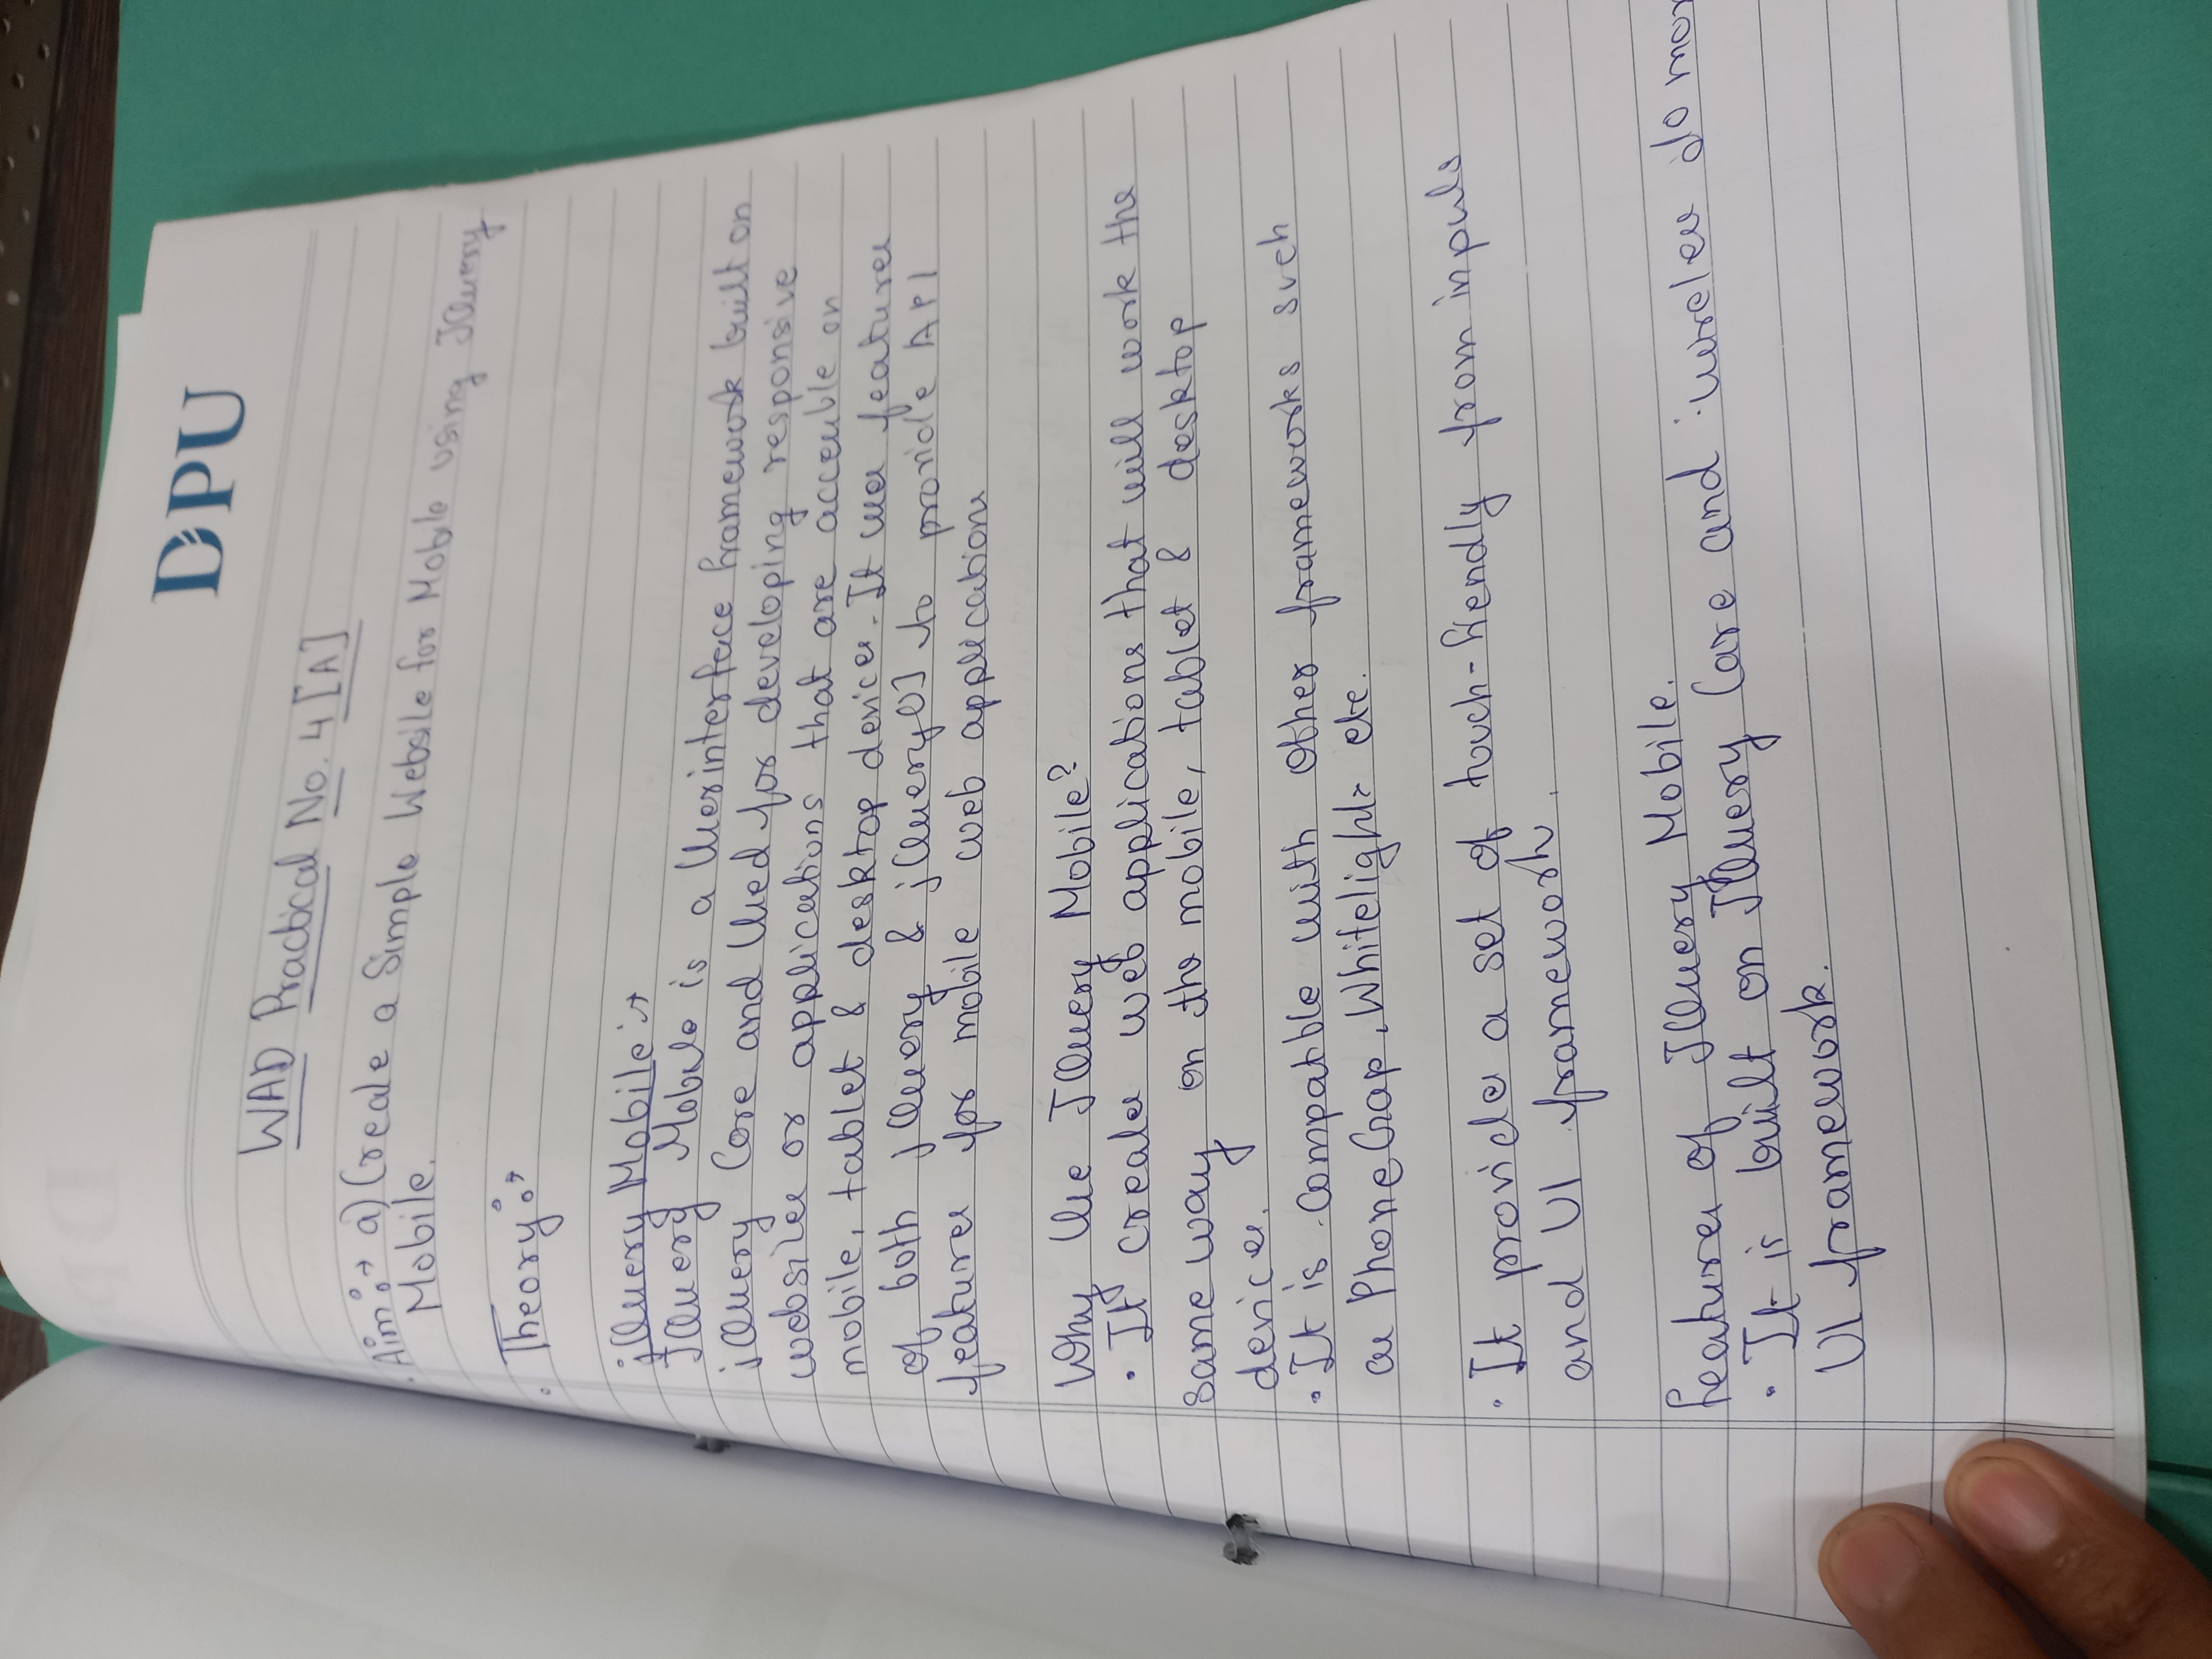 DPU
WAD Practical No. 4 [A]
Aim :→ a) Create a Simple Website for Mobile using JQuery
Mobile.
Theory :→
jQuery Mobile :→
JQuery Mobile is a User interface framework built on
jQuery Core and Used for developing responsive
websites or applications that are accessible on
mobile, tablet & desktop devices. It uses features
of both jQuery & jQueryUI to provide API
features for mobile web applications
Why Use JQuery Mobile?
• It creates web applications that will work the
same way on the mobile, tablet & desktop
devices.
• It is compatible with other frameworks such
as PhoneGap, Whitelight etc.
• It provides a set of touch-friendly from inputs
and UI framework.
features of JQuery Mobile.
• It is built on JQuery Core and do mor
UI framework.